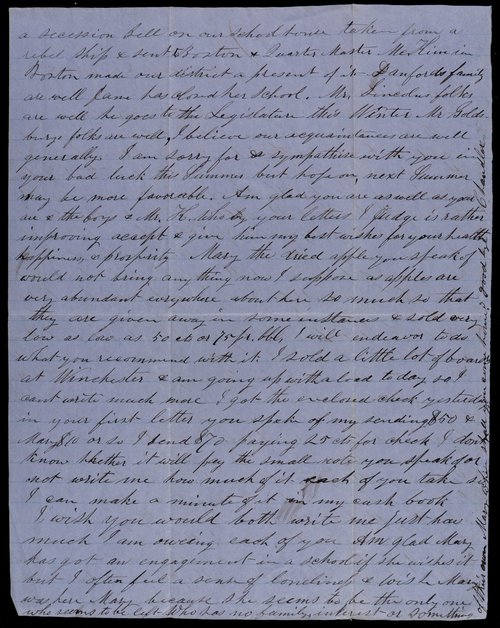 a secession bell on our school house taken from a
rebel ship & sent to Boston & Quarter Master McKim in
Boston made our district a present of it - Danfords family
are well Jane has closed her school. Mr. Lincolns folks
are well he goes to the Legislature this Winter Mr Golds
burys folks are well, I believe our acquaintances are well
generally. I am sorry for & sympathise with you in
your bad luck this Summer but hope on, next Summer
may be more favorable. Am glad you are as well as you
are & the boys & Mr. K. who by your letters I judge is rather
improving accept & give him my best wishes for your health
happiness & prosperity Mary the dried apple you speak of
would not bring any thing now I suppose as apples are
very abundant everywhere about here so much so that
they are given away in some instances & sold very
low as low as 50 ct or 75 pr. bbl, I will endeavor to do
what you recommend with it. I sold a little lot of boards
at Winchester & am going up with a load to day so I
cant write much more I got the enclosed check yesterday
in your first letter you spake of my sending $50 &
Mary $10 or so I send $70 paying 25 cts for check I dont
know whether it will pay the small note you speak of or
not write me how much of it each of you take so
I can make a minute of it in my cash book
I wish you would both write me just how
much I am oweing each of you Am glad Mary
has got an engagement in a school if she wishes it
but I often feel a sense of loneliness & wish Mary
was here Mary because she seems to be the only one
who seems to be left who has no family, interest or something
of their own Mary